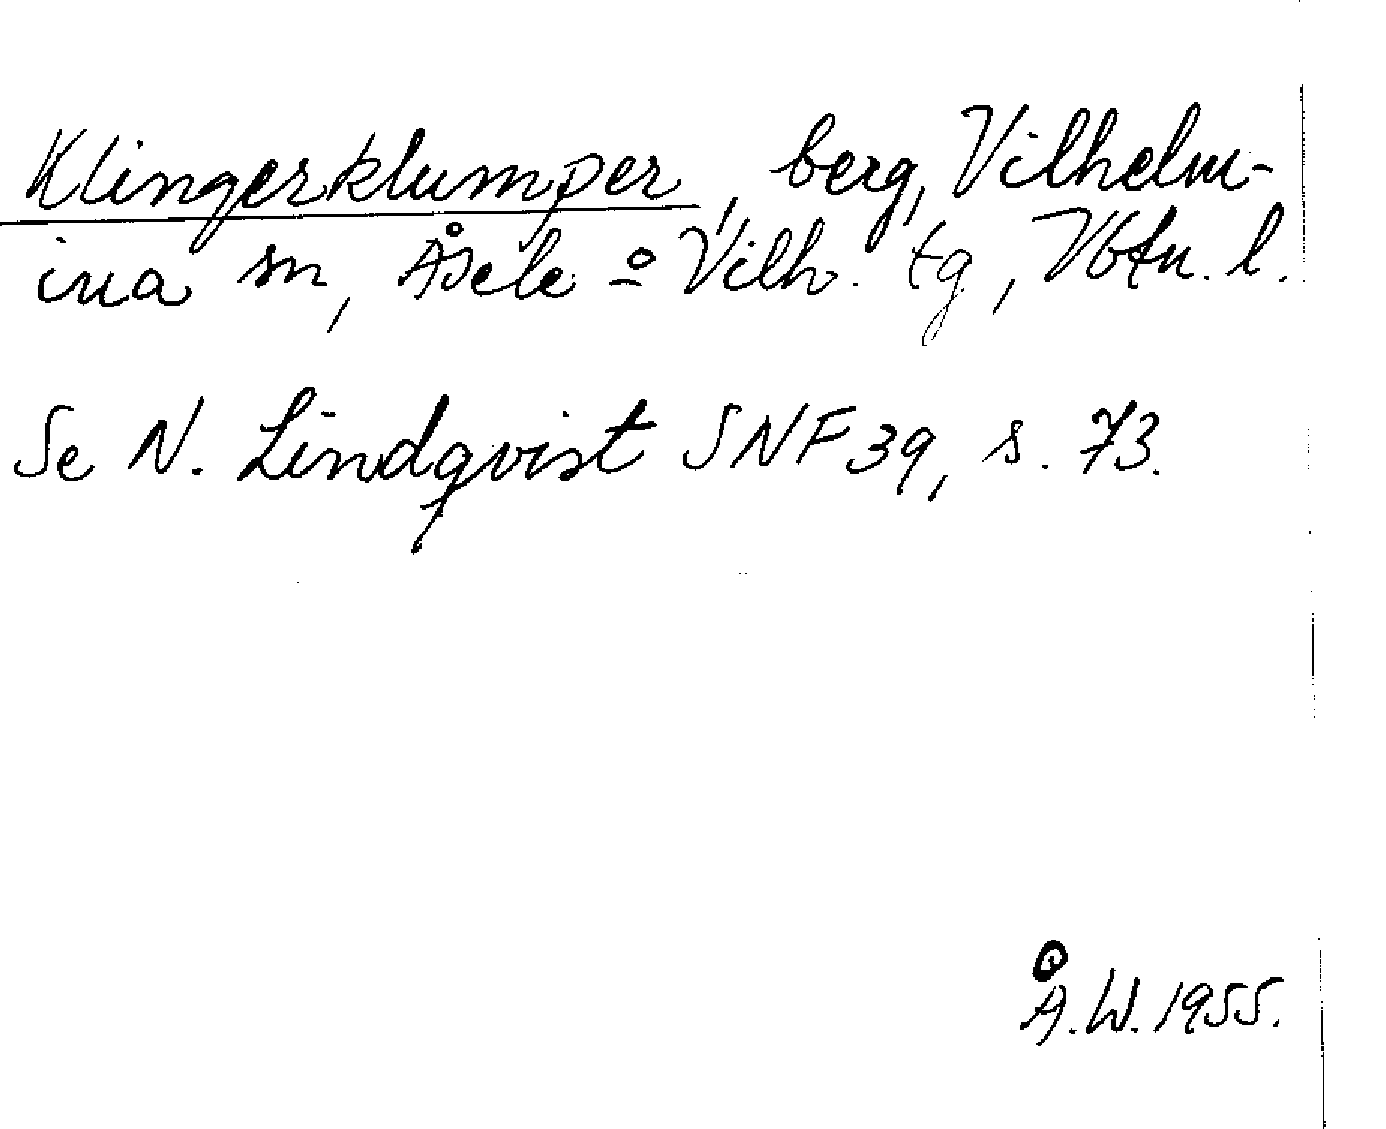 Klingerklumper, berg, Vilhelm-
ina sn, Åsele o Vilh. tg, Vbtn. l.
Se N. Lindqvist SNF 39, s. 73.
Å.W. 1955.